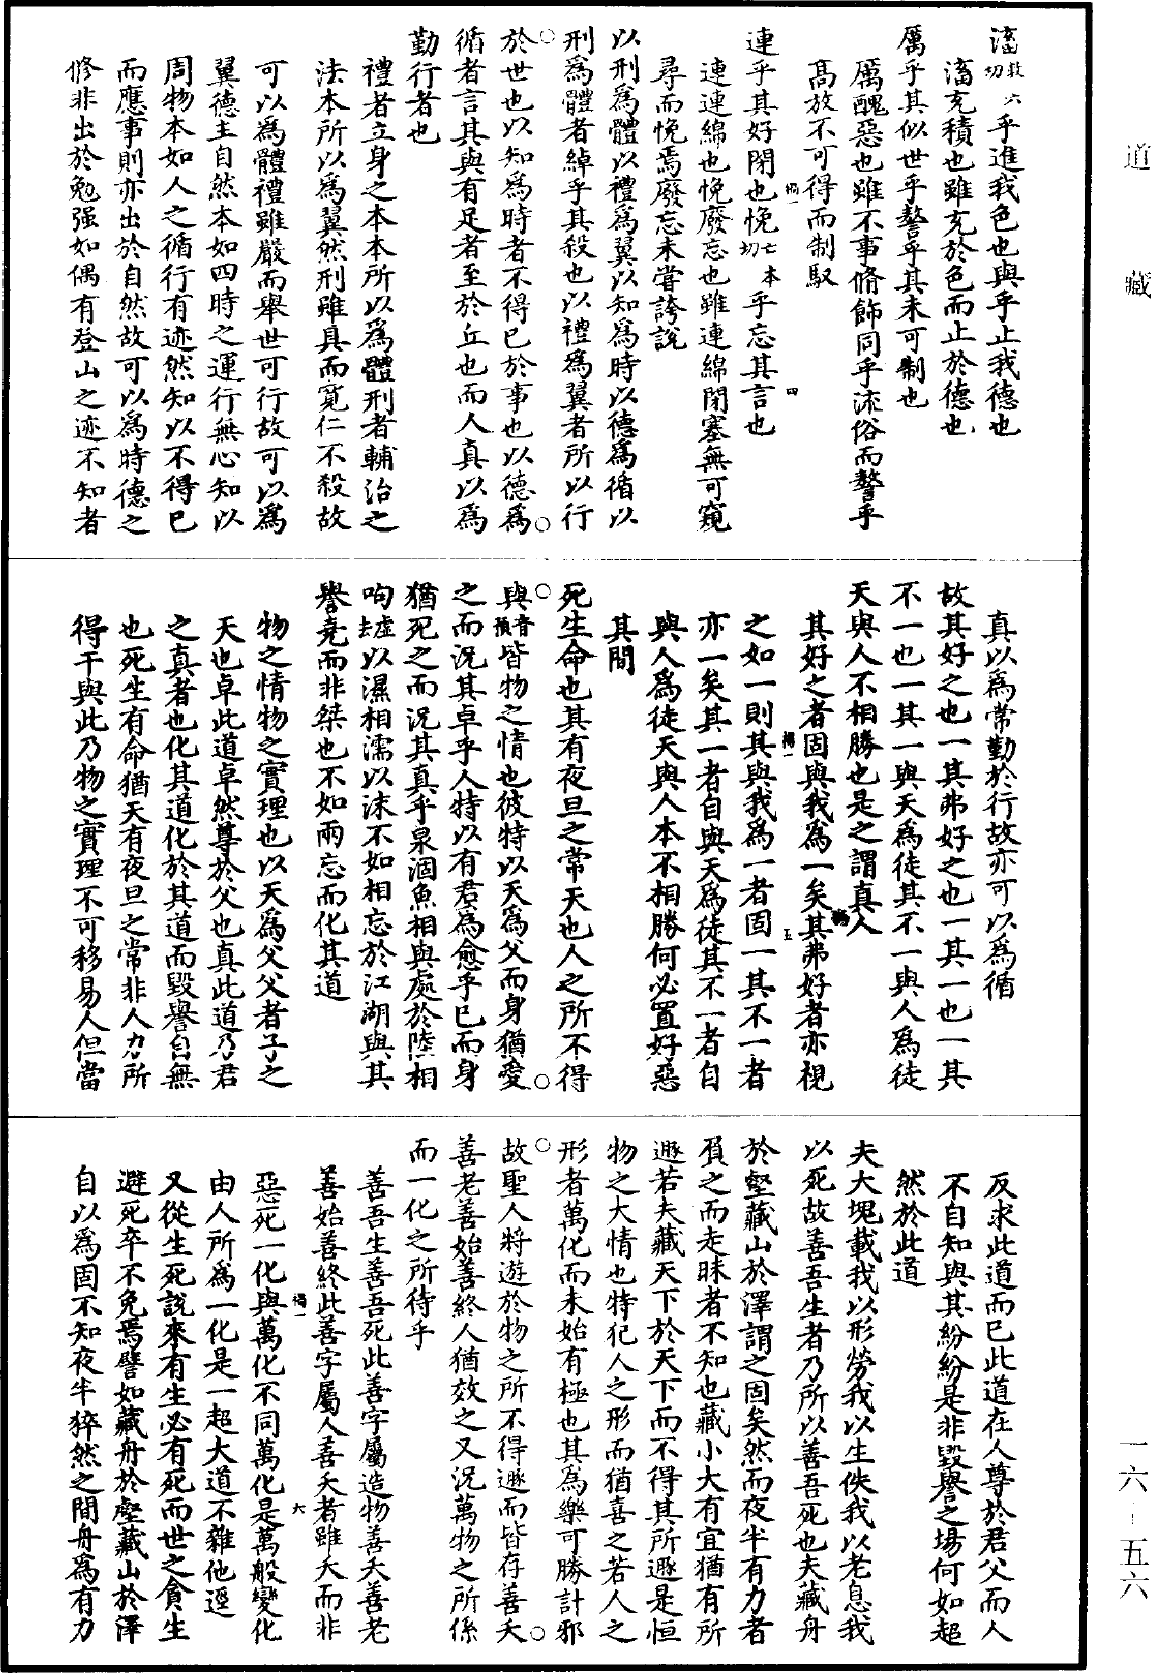 滀敕六切乎進我色也與乎止我德也
滀充積也雖充於色而止於德也
厲乎其似世乎謷乎其未可制也
厲醜惡也雖不事脩飾同乎流俗而謷乎
高放不可得而制馭
連乎其好閉也悗七本切乎忘其言也
連連綿也悗廢忘也雖連綿閉塞無可窺
尋而悗焉廢忘未嘗誇説
以刑爲體以禮爲翼以知爲時以德爲循以
刑爲體者綽乎其殺也以禮爲翼者所以行
於世也以知爲時者不得已於事也以德爲
循者言其與有足者至於丘也而人真以爲
勤行者也
禮者立身之本本所以爲體刑者輔治之
法本所以爲翼然刑雖具而寬仁不殺故
可以爲體禮雖嚴而舉世可行故可以爲
翼德主自然本如四時之運行無心知以
周物本如人之循行有迹然知以不得已
而應事則亦出於自然故可以爲時德之
脩非出於勉强如偶有登山之迹不知者
真以爲常勤於行故亦可以爲循
故其好之也一其弗好之也一其一也一其
不一也一其一與天爲徒其不一與人爲徒
天與人不相勝也是之謂真人
其好之者固與我爲一矣其弗好者亦視
之如一則其與我爲一者固一其不一者
亦一矣其一者自與天爲徒其不一者自
與人爲徒天與人本不相勝何必置好惡
其間
死生命也其有夜旦之常天也人之所不得
與音預皆物之情也彼特以天爲父而身猶愛
之而況其卓乎人特以有君爲愈乎已而身
猶死之而況其真乎泉涸魚相與處於陸相
呴去墟以濕相濡以沫不如相忘於江湖與其
譽堯而非桀也不如兩忘而化其道
物之情物之實理也以天爲父父者子之
天也卓此道卓然尊於父也真此道乃君
之真者也化其道化於其道而毀譽自無
也死生有命猶天有夜旦之常非人力所
得干與此乃物之實理不可移易人但當
反求此道而已此道在人尊於君父而人
不自知與其紛紛是非毀譽之場何如超
然於此道
夫大塊載我以形勞我以生佚我以老息我
以死故善吾生者乃所以善吾死也夫藏舟
於壑藏山於澤謂之固矣然而夜半有力者
負之而走昧者不知也藏小大有宜猶有所
遯若夫藏天下於天下而不得其所遯是恒
物之大情也特犯人之形而猶喜之若人之
形者萬化而未始有極也其爲樂可勝計邪
故聖人將遊於物之所不得遯而皆存善夭
善老善始善終人猶效之又況萬物之所係
而一化之所待乎
善吾生善吾死此善字屬造物善夭善老
善始善終此善字屬人善夭者雖夭而非
惡死一化與萬化不同萬化是萬般變化
由人所爲一化是一超大道不雜他逕
又從生死說來有生必有死而世之貪生
避死卒不免焉譬如藏舟於壑藏山於澤
自以爲固不知夜半猝然之間舟爲有力
道藏
一六-五六